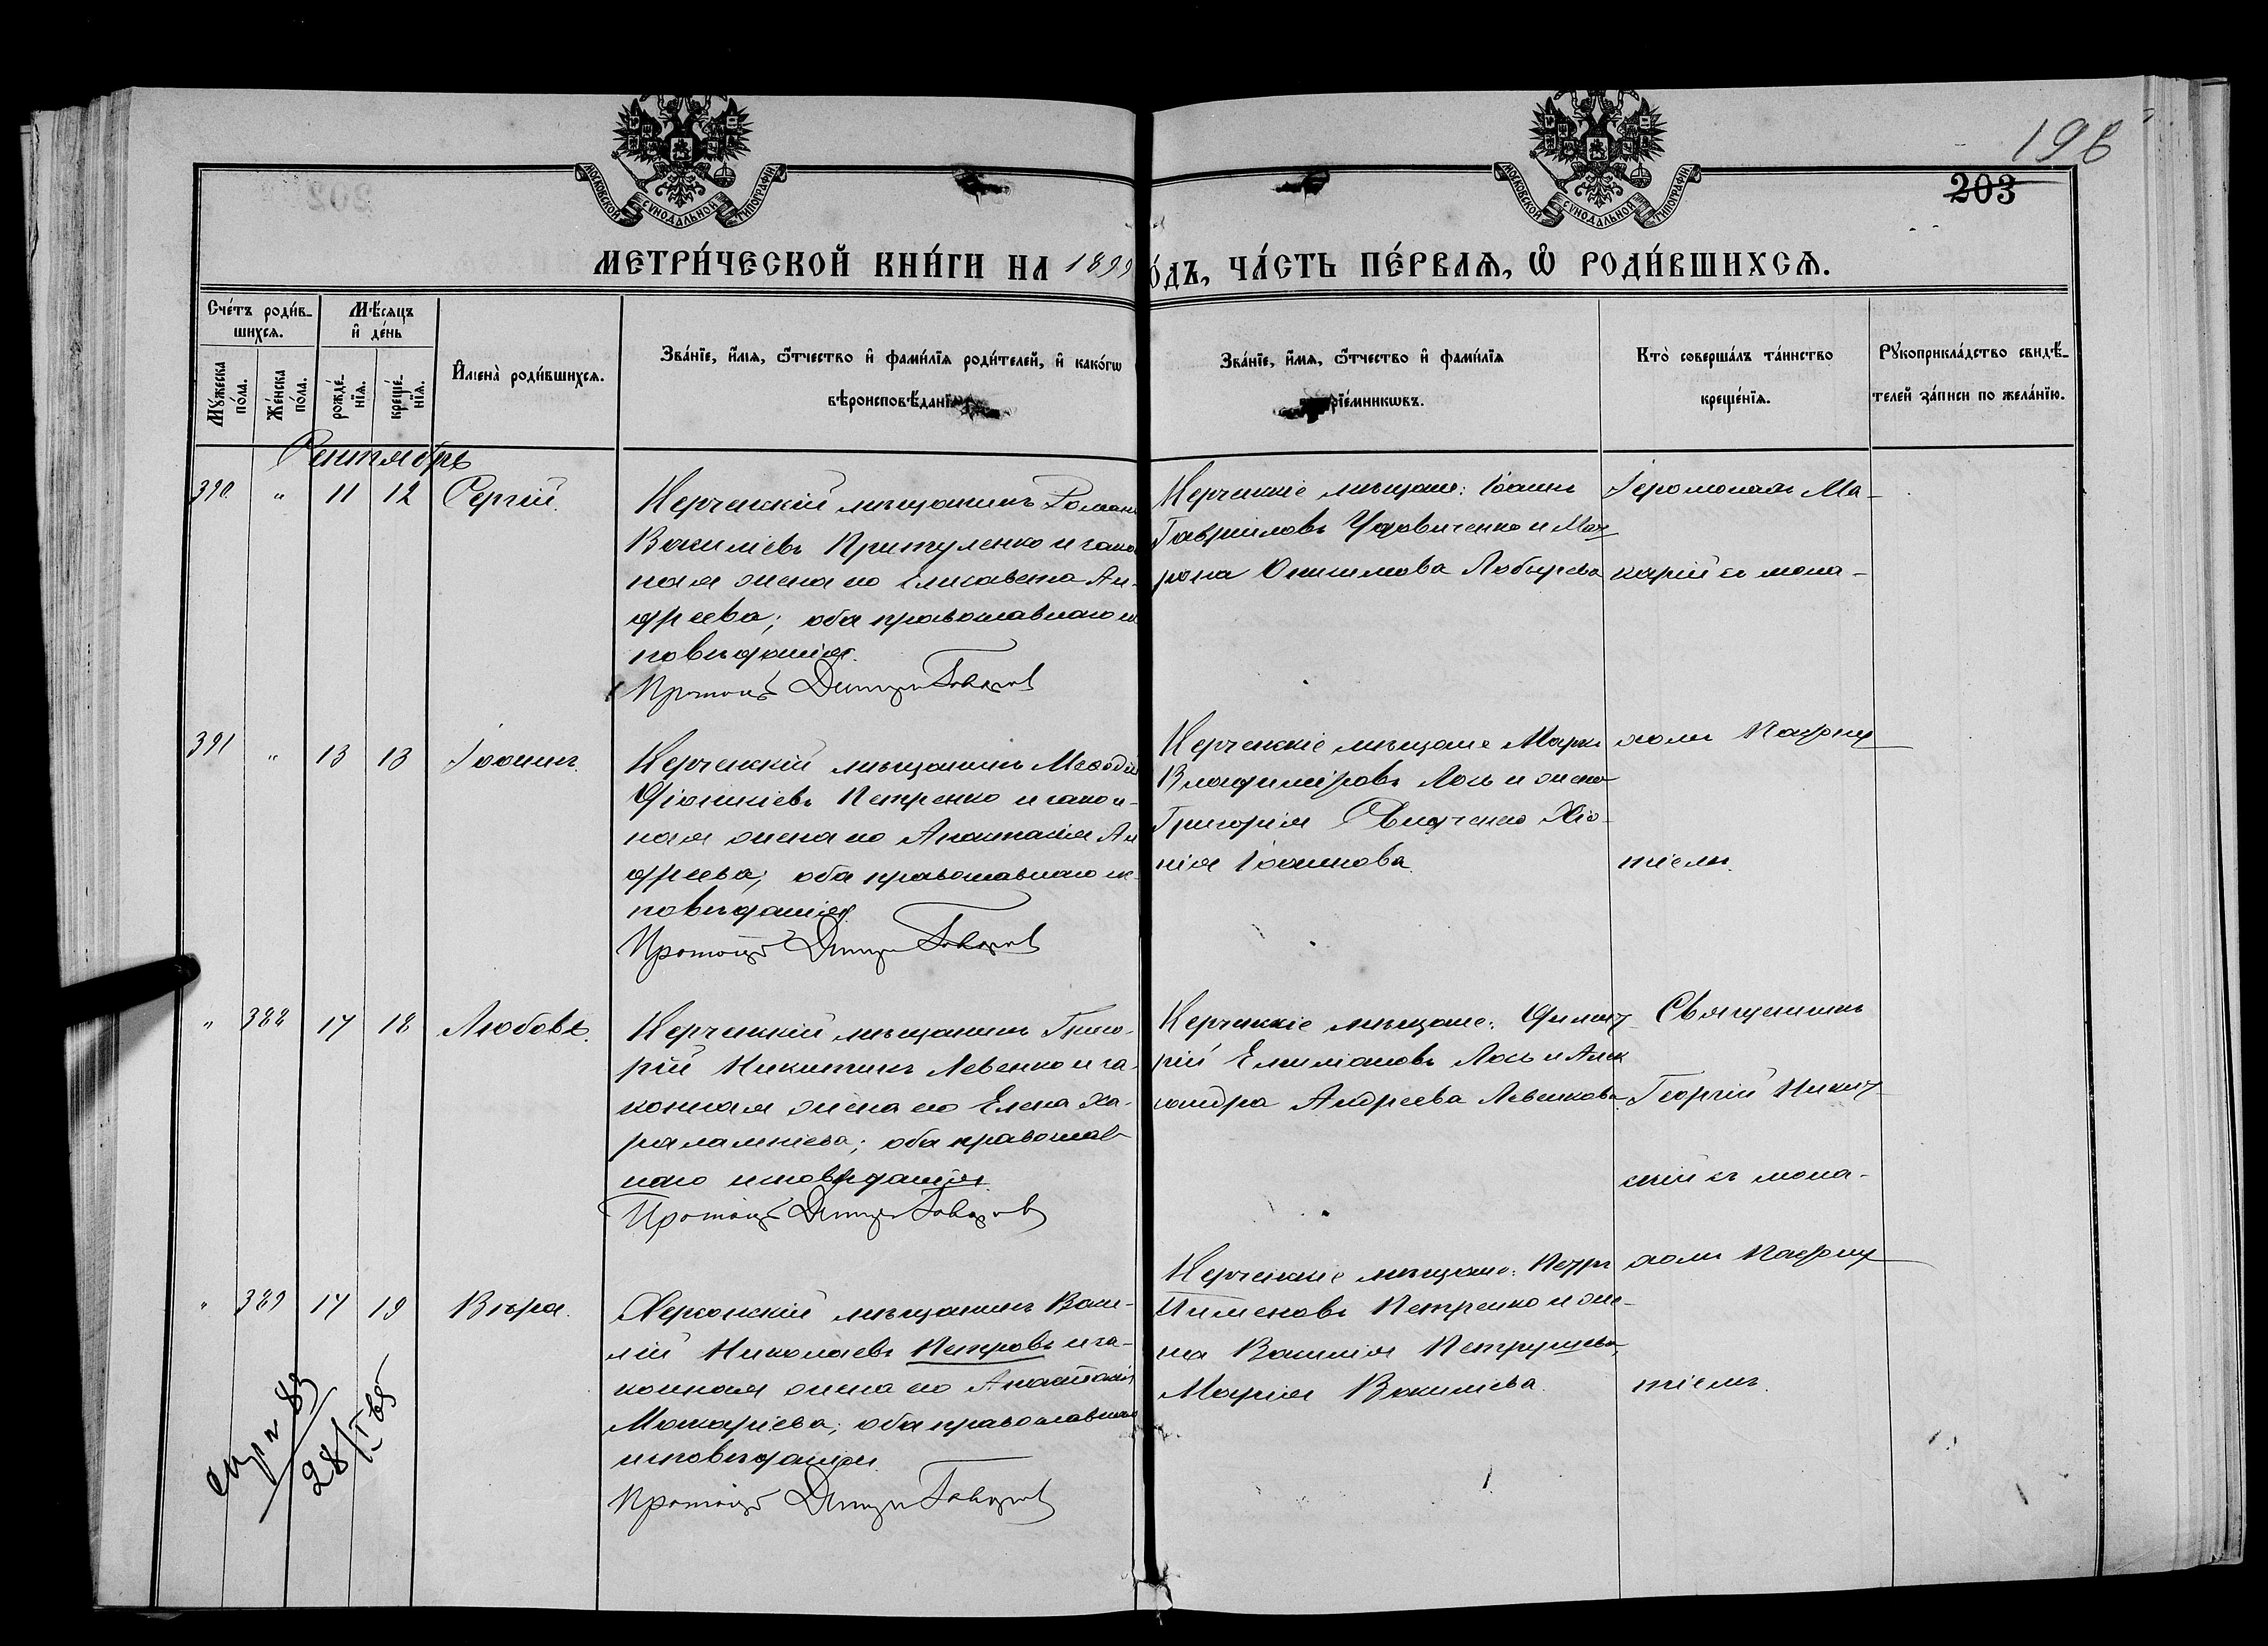 198
203
МОСКОВСКОЙ СѴНОДАЛЬНОЙ ТИПОГРАФІИ
МОСКОВСКОЙ СѴНОДАЛЬНОЙ ТИПОГРАФІИ
МЕТРИ́ЧЕСКОЙ КНИ́ГИ НА 1899
О́ДЪ, ЧА́СТЬ ПЕ́РВАѦ, Ѽ РОДИ́ВШИХСѦ.
Сче́тъ роди́в-
шихсѧ.
Мѣ́сѧцъ
и҆ де́нь
Мꙋ́жеска
по́ла.
Же́нска
по́ла.
рожде́-
нїѧ.
креще́-
нїѧ.
И҆мена̀ роди́вшихсѧ.
Зва́нїе, и҆́мѧ, ѻ҆́тчество и҆ фами́лїѧ роди́телей, и҆ како́гѡ
вѣроисповѣ́данїѧ
Зва́нїе, и҆́мѧ, ѻ҆́тчество и҆ фами́лїѧ
рїе́мникѡвъ.
Кто̀ соверша́лъ та́инство
креще́нїѧ.
Рꙋкоприкла́дство свидѣ́-
телей за́писи по жела́нїю.
Сентябрь
390 " 11 12 Сергій.
Керченскій мѣщанинъ Романъ
Василіевъ Притуленко и закон
ная жена его Елисавета Ан-
дреева; оба православнаго ис
повѣданія.
Протоіер Димитр
Керченскіе мѣщане: Іоаннъ
Гавріиловъ Удовиченко и Мат
рона Онисимова Лобырева
Іеромонахъ Ма-
карій съ пcaло-
391 " 13 13 Іоаннъ.
Керченскій мѣщанинъ Меѳодій
Діонисіевъ Петренко и закон-
ная жена его Анастасія Ан
дреева; оба православнаго ис-
повѣданія.
Протоіер Димитр
Керченскіе мѣщане Маркъ
Владиміровъ Лось и жена
Григорія Свидченко Хіо-
нія Іоаннова.
хомъ Пафну
тіемъ.
" 388 17 18 Любовь.
Керченскій мѣщанинъ Григо-
рій Никитинъ Левенко и за-
конная жена его Елена Ха-
ралампіева; оба православ
наго исповѣданія.
Протоіер Димитр
Керченскіе мѣщане: Димит
рій Емиліановъ Лось и Алек
сандра Андреева Левенкова.
Священникъ
Георгій Никит
скій съ мона-
" 389 17 19 Вѣра.
Херсонскій мѣщанинъ Васи-
лій Николаевъ Петровъ и за-
конная жена его Анастасія
Макаріева; оба православнаго
исповѣданія.
Протоіер Димитр
Керченскіе мѣщане: Петръ
Пименовъ Петренко и же-
на Василія Петрушева,
Марія Василіева.
хомъ Пафну
тіемъ.